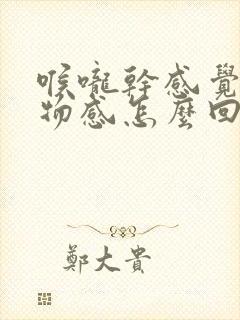 喉嚨幹感覺
物感怎麼回
鄭大貴